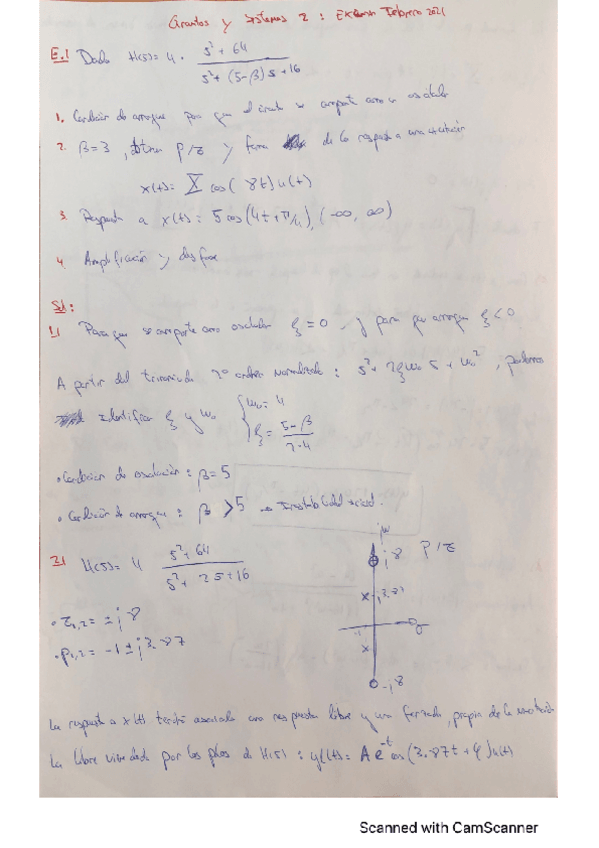 Circuitos y Sistemas 2 : Examen Febrero 2021
E.1 Dado H(s) = 4 · (s² + 64) / (s² + (5-β)s + 16)
1. Condición de arranque para que el circuito se comporte como un oscilador
2. β=3, obtener P/Z y forma de la respuesta a una excitación
x(t) = X cos(8t) u(t)
3. Respuesta a x(t) = 5 cos(4t + π/4), (-∞, ∞)
4. Amplificación y desfase
S1:
1.1 Para que se comporte como oscilador ξ = 0 y para que arranque ξ < 0
A partir del trinomio de 2º orden normalizado : s² + 2ξω₀ s + ω₀² , podemos
identificar ξ y ω₀ { ω₀ = 4
ξ = (5-β) / (2·4)
• Condición de oscilación : β = 5
• Condición de arranque : β > 5 → Inestabilidad
2.1 H(s) = 4 (s² + 64) / (s² + 2s + 16)
jω
j8 P/Z
x j3.87
• z₁,₂ = ± j8
-1
σ
• p₁,₂ = -1 ± j3.87
x
-j8
La respuesta a x(t) tendrá asociada una respuesta libre y una forzada, propia de la excitación
La libre vine dada por los polos de H(s) : yl(t) = A e^-t cos(3.87t + φ) u(t)
Scanned with CamScanner